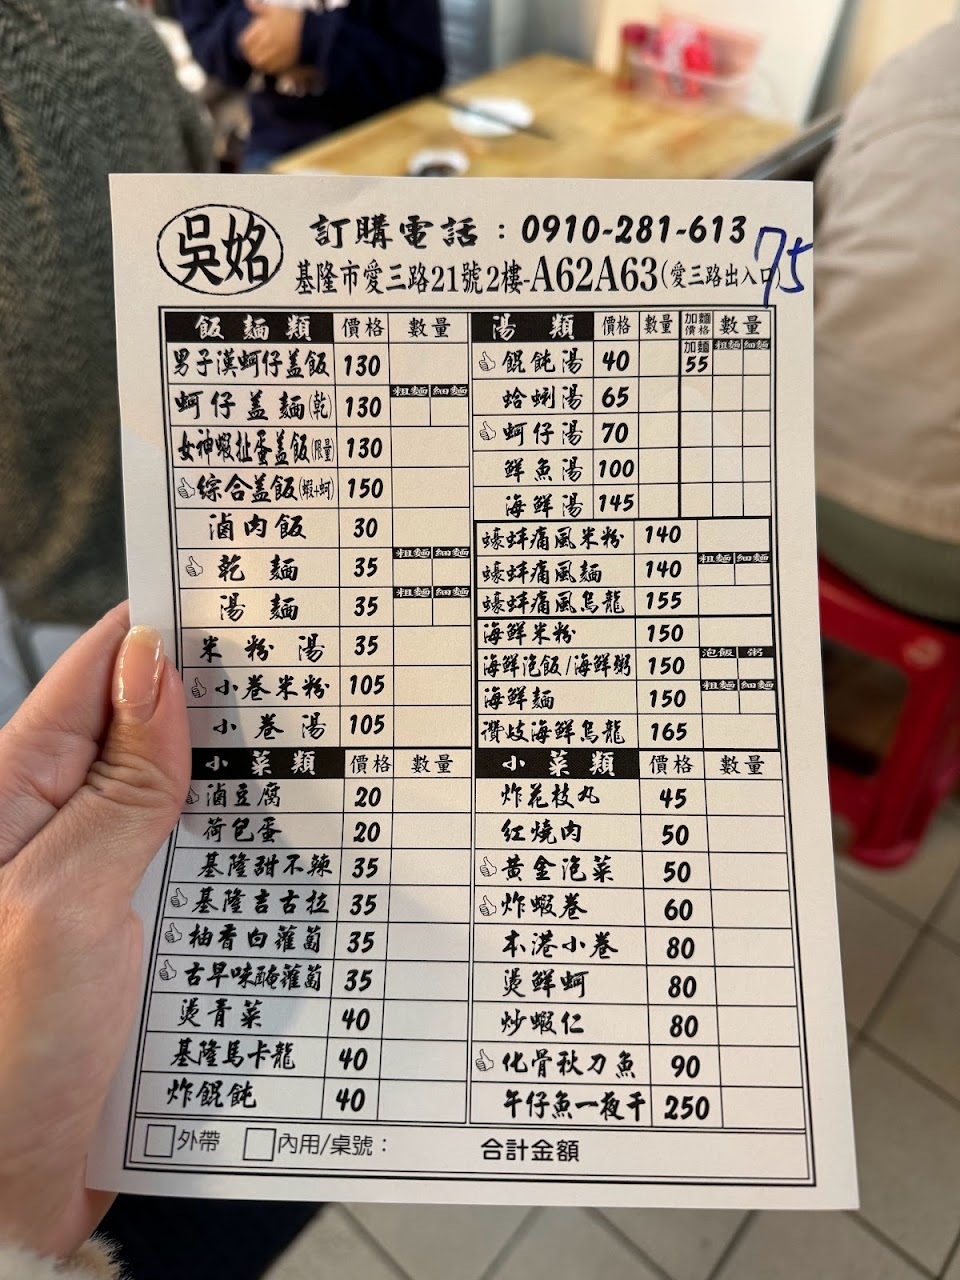 吳姳
訂購電話：0910-281-613
75
基隆市愛三路21號2樓-A62A63(愛三路出入口)
飯麵類 價格 數量
男子漢蚵仔盖飯 130
蚵仔盖麵(乾) 130 粗麵 細麵
女神蝦扯蛋盖飯(限量) 130
綜合盖飯(蝦+蚵) 150
滷肉飯 30
乾麵 35 粗麵 細麵
湯麵 35 粗麵 細麵
米粉湯 35
小卷米粉 105
小卷湯 105
湯類 價格 數量 加麵價格 數量
餛飩湯 40 加麵55 粗麵 細麵
蛤蜊湯 65
蚵仔湯 70
鮮魚湯 100
海鮮湯 145
蠔蚌痛風米粉 140
蠔蚌痛風麵 140 粗麵 細麵
蠔蚌痛風烏龍 155
海鮮米粉 150
海鮮泡飯/海鮮粥 150 泡飯 粥
海鮮麵 150 粗麵 細麵
讚岐海鮮烏龍 165
小菜類 價格 數量
滷豆腐 20
荷包蛋 20
基隆甜不辣 35
基隆吉古拉 35
柚香白蘿蔔 35
古早味醃蘿蔔 35
燙青菜 40
基隆馬卡龍 40
炸餛飩 40
小菜類 價格 數量
炸花枝丸 45
紅燒肉 50
黃金泡菜 50
炸蝦卷 60
本港小卷 80
燙鮮蚵 80
炒蝦仁 80
化骨秋刀魚 90
午仔魚一夜干 250
外帶 內用/桌號： 合計金額